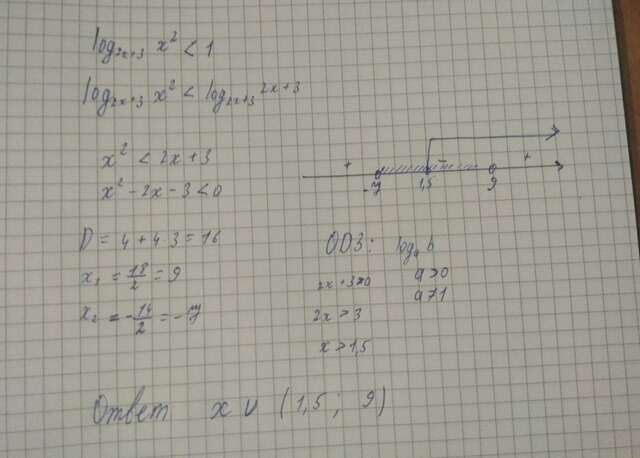 log₂ₓ₊₃ x² < 1
log₂ₓ₊₃ x² < log₂ₓ₊₃ 2x+3
x² < 2x+3
x² - 2x - 3 < 0
D = 4 + 4·3 = 16
x₁ = 18/2 = 9
x₂ = -14/2 = -7
+ - +
-7 1,5 9
ОДЗ: logₐ b
2x+3>0 a>0
2x > 3 a≠1
x > 1,5
Ответ x ∪ (1,5; 9)